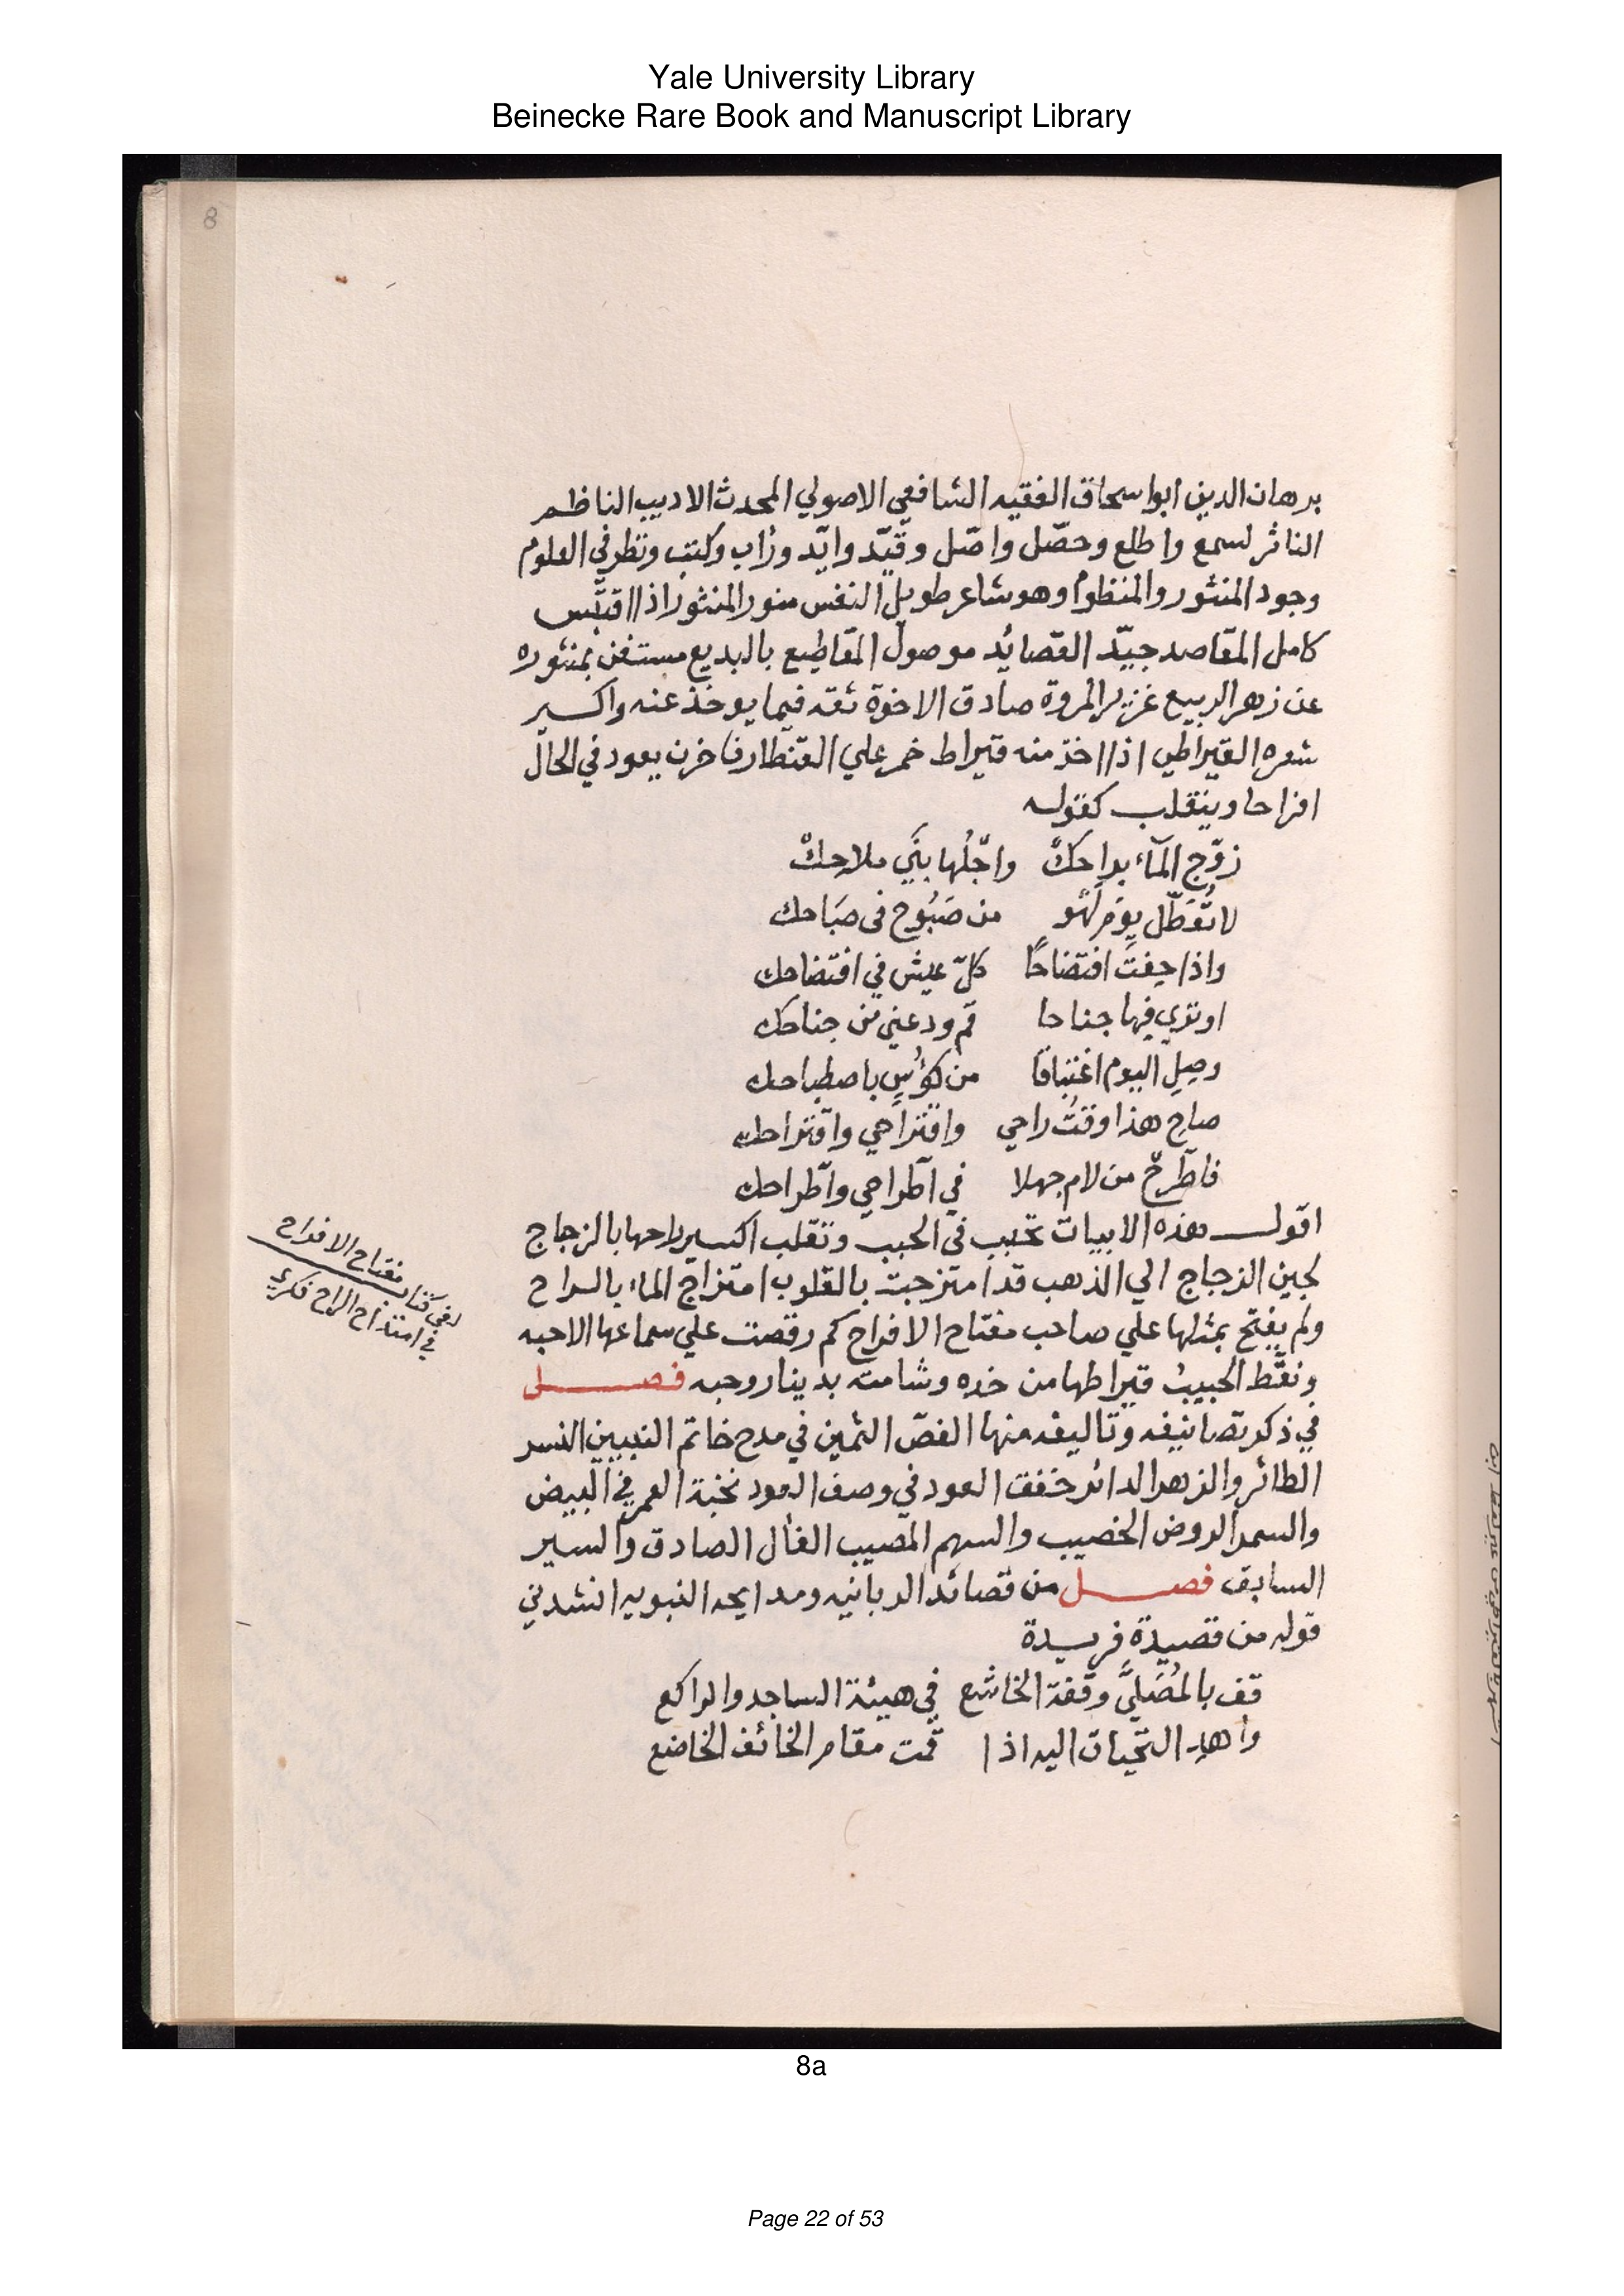 Yale University Library
Beinecke Rare Book and Manuscript Library
8
برهان الدين ابو اسحاق الفقيه الشافعي الاصولي المحدث الاديب الناظم
الناثر لسمع واطلع وحصّل واصّل وقيّد وايّد وزاب وكتب ونظر في العلوم
وجود المنثور والمنظوم وهو شاعر طويل النفس منور المنثور اذا اقتبس
كامل المقاصد جيّد القصائد موصول المقاطيع بالبديع مستغن بمنثوره
عن زهر الربيع غزير المروة صادق الاخوة ثقه فيما يوخذ عنه واكسير
شعره القيراطي اذا اخذ منه قيراط خمر علي القنطار فاخرن يعود في الحال
افراحا وينقلب كقوله
زوّج المآء براحك واجّلها بنَي ملاحك
لا تُعَطّل يوم لهْو من صَبُوح في صبَاحك
واذا خِفتَ افتضاحًا كلّ عيش في افتضاحك
او تري فيها جناحا قم ودعني من جناحك
وصِلِ اليوم اغتباقا من كؤسٍ باصطباحك
صاحِ هذا وقتُ راحي واقتراحي واقتراحك
فاطّرحْ من لام جهلا في اطّراحي واطّراحك
اقول هذه الابيات تحبب في الحبب وتقلب اكسير راحها بالزجاج
لجين الزجاج الي الذهب قد امتزجت بالقلوب امتزاج الماء بالراح
ولم يفتح بمثلها علي صاحب مفتاح الافراح كم رقصت علي سماعها الاحبه
ونقّط الحبيبُ قيراطها من خده وشامته بدينار وحبه فصل
في ذكر تصانيفه وتاليفه منها الفصّ الثمين في مدح خاتم النبيين النسر
الطائر والزهر الدائر خفق العود في وصف العود نخبة العمر في البيض
والسمر الروض الخصيب والسهم المصيب الفال الصادق والسير
السابق فصل من قصائد الربانيه ومدايحه النبويه انشدني
قوله من قصيدة فريدة
قف بالمُصَليَّ وقفة الخاشع في هيئة الساجد والراكع
واهدِ التحيات اليه اذا قمت مقام الخائف الخاضع
مفتاح الافراح
في امتداح الراح
8a
Page 22 of 53